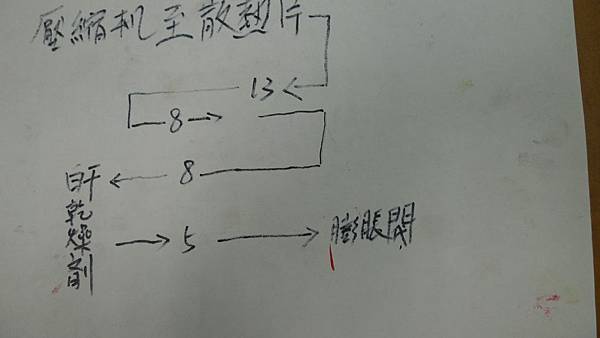 壓縮机至散熱片
13
8
8
乾燥劑
5
膨脹閥